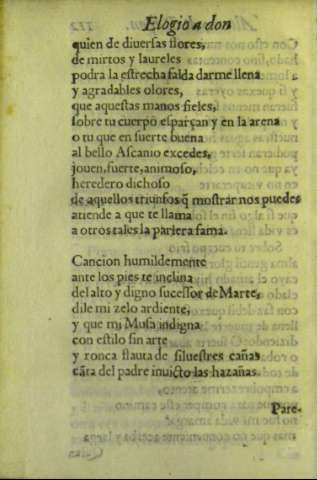 Elogio a don
quien de diuersas flores,
de mirtos y laureles
podra la estrecha falda darme llena
y agradables olores,
que aquestas manos fieles,
sobre tu cuerpo esparçan y en la arena
o tu que en suerte buena
al bello Ascanio excedes,
jouen, fuerte, animoso,
heredero dichoso
de aquellos triunfos q̃ mostrar nos puedes
atiende a que te llama
a otros tales la parlera fama.
Cancion humildemente
ante los pies te inclina
del alto y digno sucessor de Marte,
dile mi zelo ardiente,
y que mi Musa indigna
con estilo sin arte
y ronca flauta de siluestres cañas
cãta del padre inuicto las hazañas.
Pare-